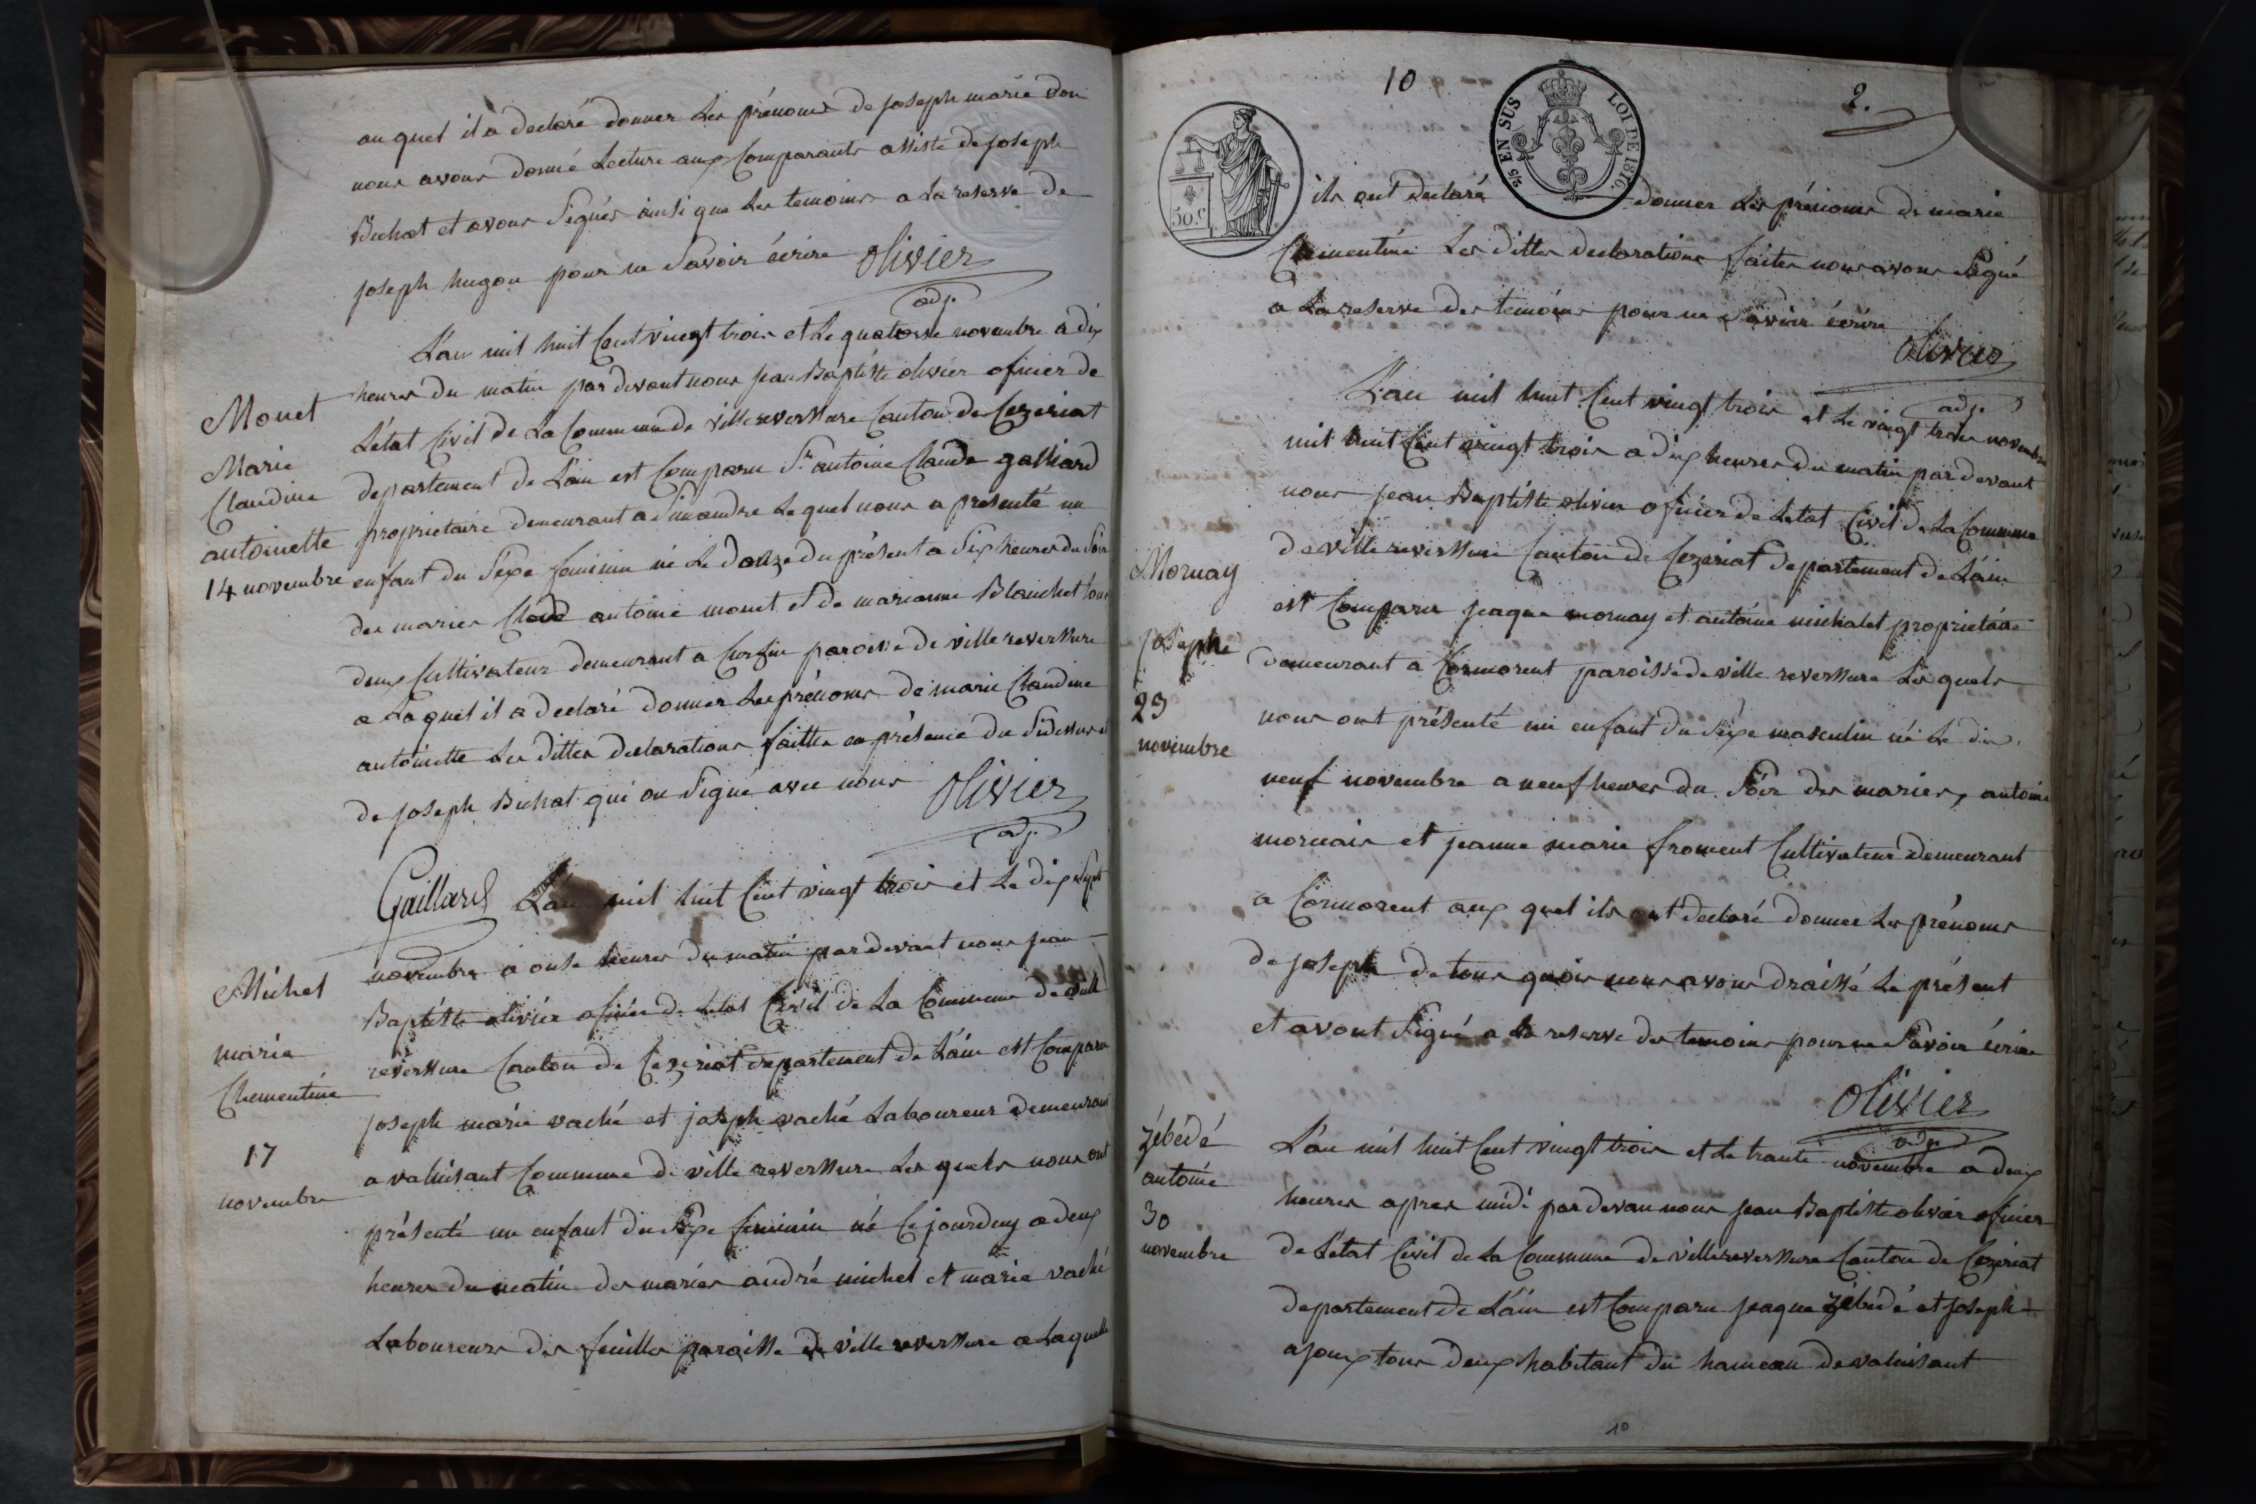 au quel il a declaré donner les prénoms de joseph marie don
nous avons donné Lecture aux Comparants assisté de joseph
Buchat et avons Signés ainsi que les temoins a la reserve de
joseph hugon pour ne Savoir écrire Olivier
adj.
Monet
Marie
Claudine
antoinette
14 novembre
L'an mil huit Cent vingt trois et le quatorse novembre a dix
heures du matin par devant nous jean Baptiste olivier oficier de
L'état Civil de la Commune de villereverssure Canton de Cezeriat
departement de L'ain est Comparu Sr antoine Claude galliard
proprietaire demeurant a Simandre Le quel nous a presenté un
enfant du Sexe feminin né le douze du présent a Six heures du Soir
des mariés Claude antoine monet et de marianne Blanchet tous
deux Cultivateur demeurant a paroisse de ville reverssure
a la quel il a declaré donner les prénoms de marie Claudine
antoinette Les dittes declarations faittes en présence du Sidessus et
de joseph Buchat qui on Signé avec nous Olivier
adj.
Gaillard
Michel
marie
Clementine
17
novembre
L'an mil huit Cent vingt trois et le dix Sept
novembre a onse heures du matin par devant nous jean
Baptiste olivier oficier de letat Civil de la Commune de ville
reverssure Canton de Cezeriat departement de L'ain est Comparu
joseph marie vaché et joseph vaché Laboureur demeurant
a valuisant Commune de ville reverssure Les quels nous ont
présenté un enfant du Sexe feminin né Ce jourduy a deux
heures du matin des mariés andré michel et marie vaché
Laboureurs des feuilles paroisse de ville reverssure a laquelle
10
2.
5/5 EN SUS
LOI DE 1816.
50.c
ils ont declaré donner les prénoms de marie
Clementine Les dittes declarations faites nous avons Signé
a la reserve des temoins pour ne Savoir écrire
Olivier
adj.
Mornay
joseph
23
novembre
L'an mil huit Cent vingt trois et le vingt trois novembre
mil huit Cent vingt trois a dix heures du matin par devant
nous jean Baptiste olivier oficier de Letat Civil de La Commune
de ville reverssure Canton de Cezeriat departement de L'ain
est Comparu jeaque mornay et antoine michalet proprietaire
demeurant a Cormorent paroisse de ville reverssure Les quels
nous ont présenté un enfant du Sexe masculin né le dix
neuf novembre a neuf heures du Soir des mariés, antoine
mornais et jeanne marie froment Cultivateur demeurant
a Cormorent aux quel ils ont declaré donner les prénoms
de joseph de tous quois nous avons draissé le présent
et avont Signé a la reserve des temoins pour ne Savoir écrire
Olivier
adj.
zébédé
antoine
30
novembre
L'an mil huit Cent vingt trois et le trante novembre a deux
heures apres midi par devan nous jean Baptiste olivier oficier
de L'état Civil de La Commune de villereverssure Canton de Cezeriat
departement de L'ain est Comparu jeaque zébédé et joseph
ajoux tous deux habitant du hameau de valuisant
10